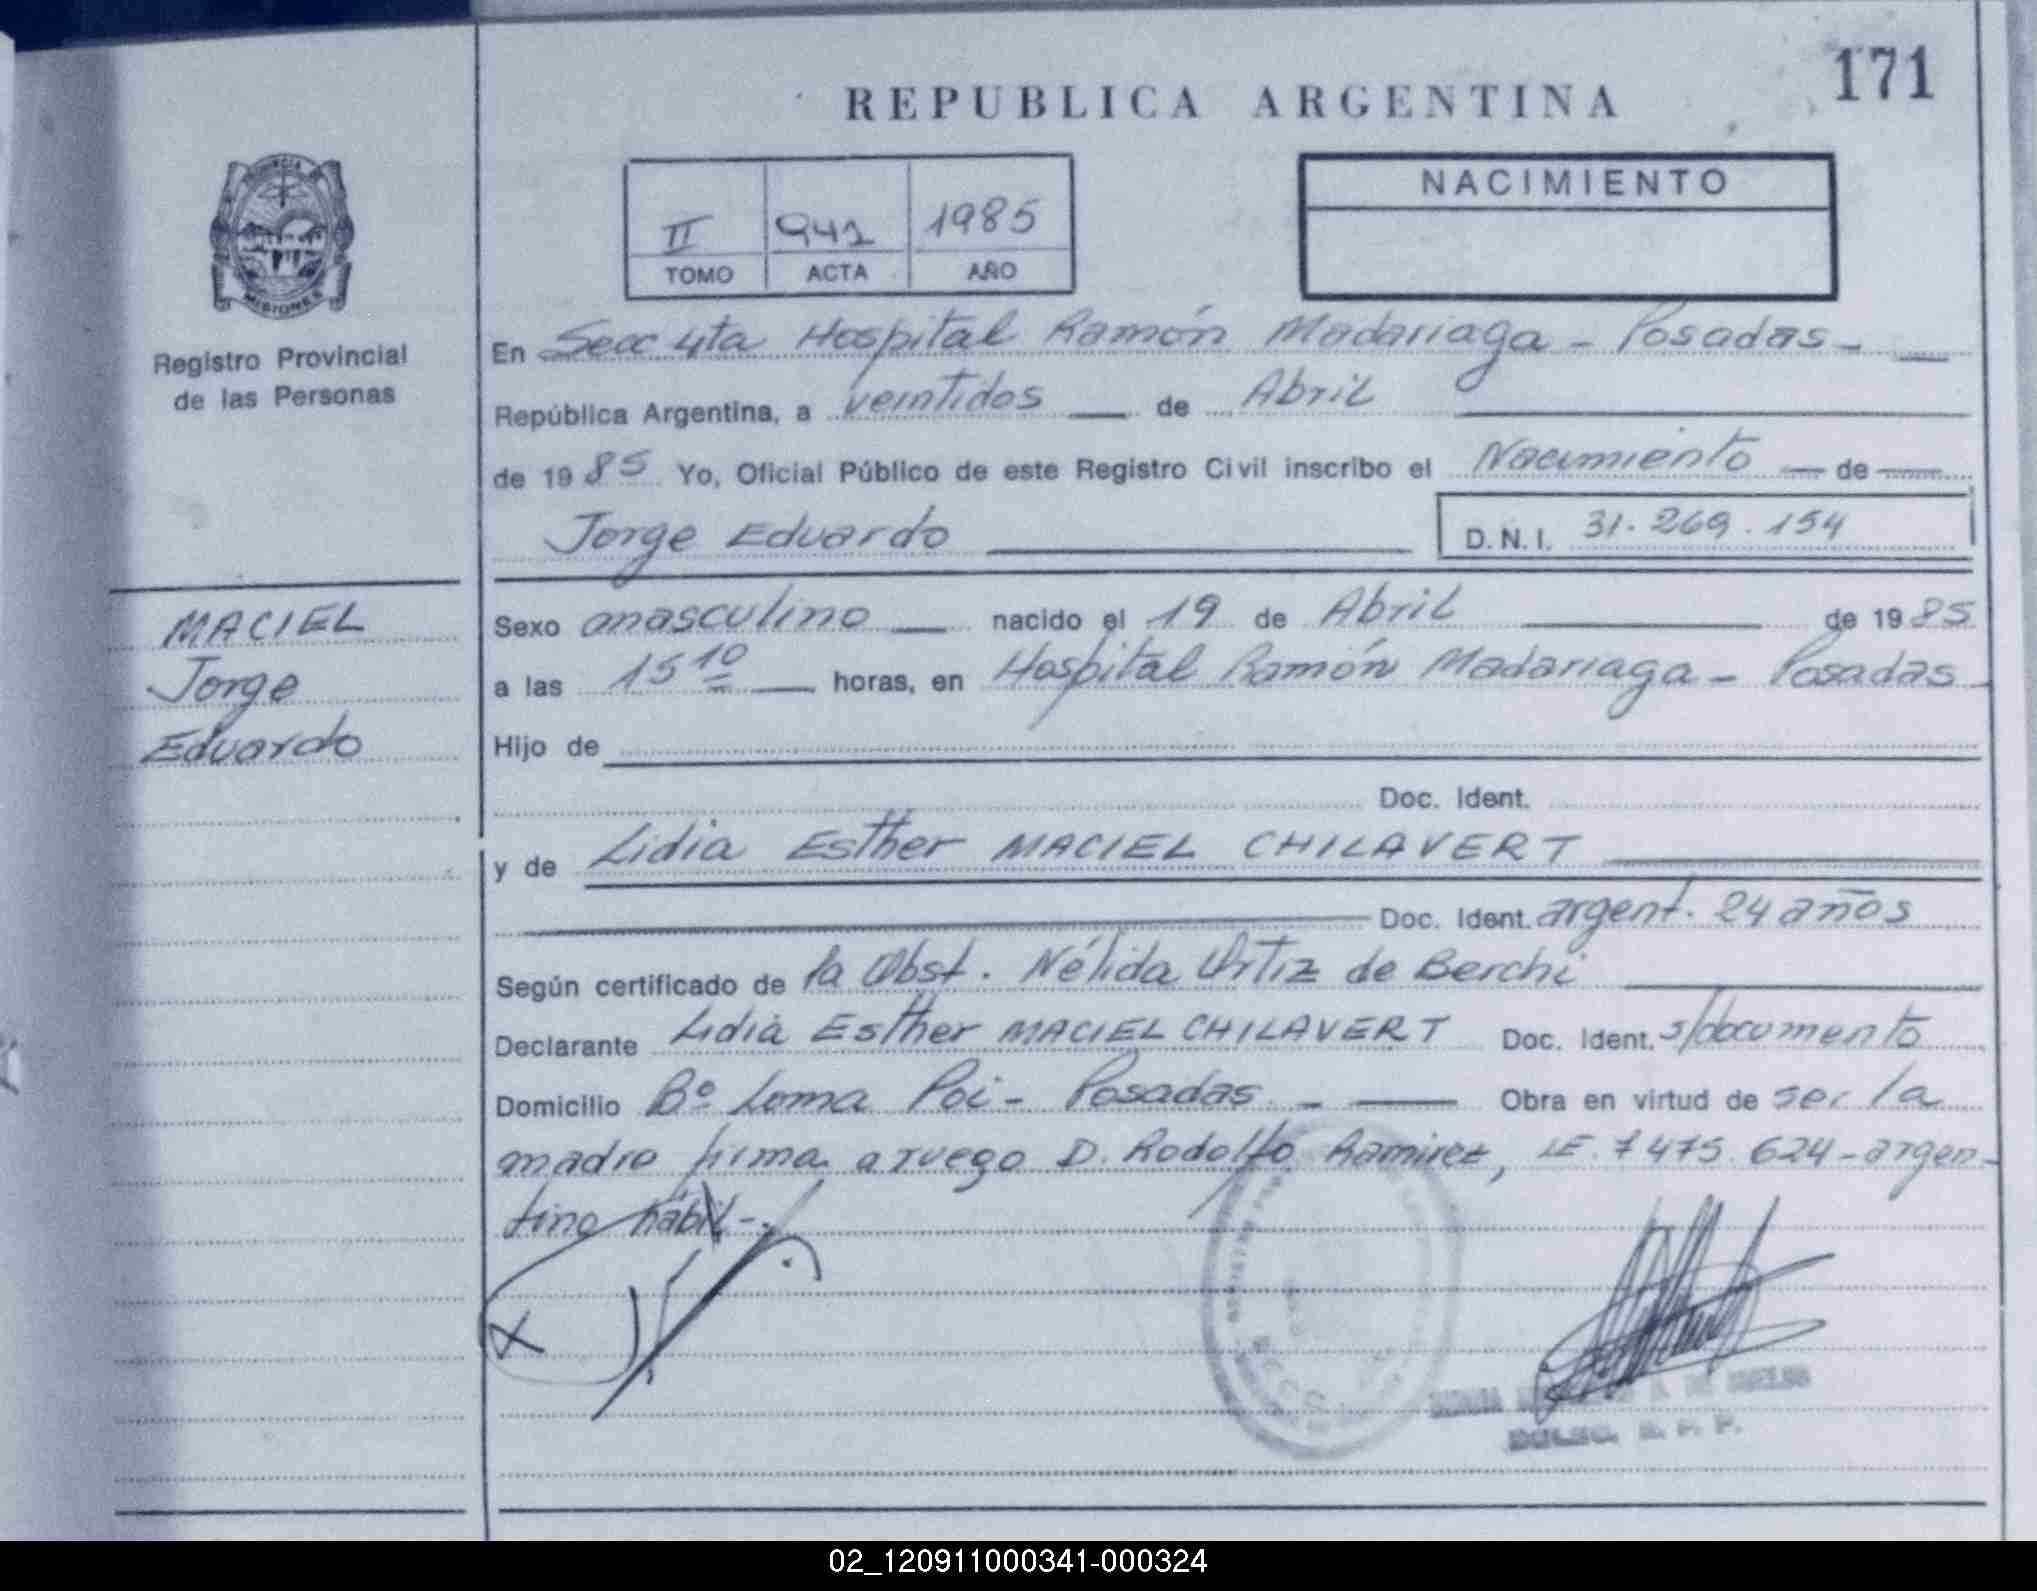 171
REPUBLICA ARGENTINA
PROVINCIA
MISIONES
Registro Provincial
de las Personas
II 941 1985
TOMO ACTA AÑO
NACIMIENTO
En Secc 4ta Hospital Ramón Madariaga - Posadas -
República Argentina, a veintidos de Abril
de 1985 Yo, Oficial Público de este Registro Civil inscribo el Nacimiento de
Jorge Eduardo D.N.I. 31.269.154
MACIEL
Jorge
Eduardo
Sexo masculino nacido el 19 de Abril de 1985
a las 15 10 horas, en Hospital Ramón Madariaga - Posadas
Hijo de
Doc. Ident.
y de Lidia Esther MACIEL CHILAVERT
Doc. Ident. argent. 24 años
Según certificado de la Obst. Nélida Urtiz de Berchi
Declarante Lidia Esther MACIEL CHILAVERT Doc. Ident. s/documento
Domicilio Bº Loma Poi - Posadas - Obra en virtud de ser la
madre firma a ruego D. Rodolfo Ramirez, LE. 7475.624 - argen-
tino hábil -.
02_120911000341-000324